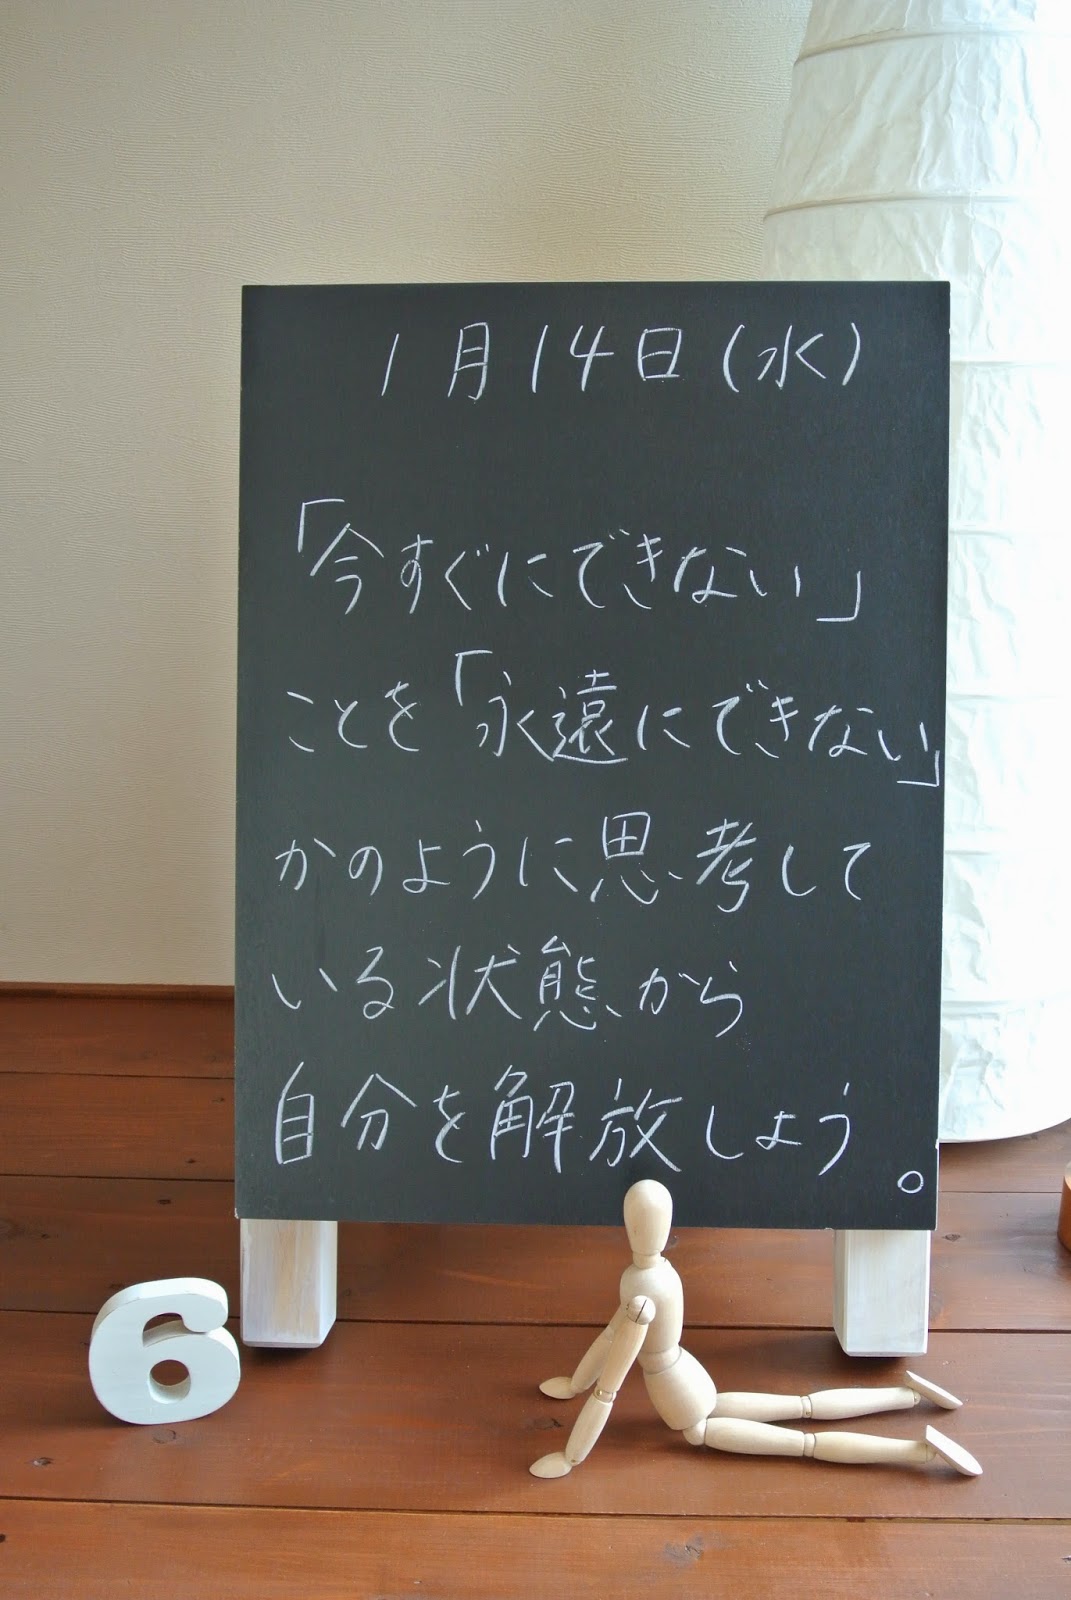 1月14日(水)
「今すぐにできない」
ことを「永遠にできない」
かのように思考して
いる状態から
自分を解放しよう。
6